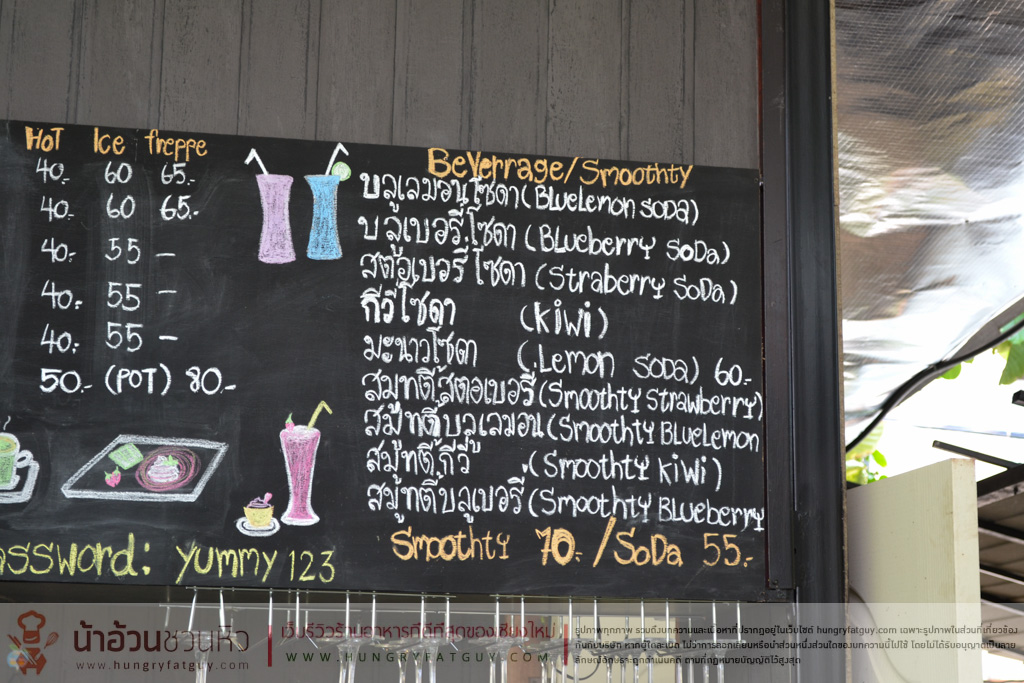 HOT Ice freppe
40.- 60 65.-
40.- 60 65.-
40.- 55 –
40.- 55 –
40.- 55 –
50.- (POT) 80.-
assword: yummy 123
BeVerrage/Smoothty
บลูเลมอนโซดา (BlueLemon soDa)
บลูเบอรี่โซดา (Blueberry SoDa)
สตอเบอรี่โซดา (Straberry SoDa)
กีวีโซดา (kiwi)
มะนาวโซดา (Lemon soDa) 60.-
สมูทตี้สตอเบอรี่ (Smoothty Strawberry)
สมูทตี้บลูเลมอน (Smoothty BlueLemon
สมูทตี้กีวี่ (Smoothty kiwi)
สมูทตี้บลูเบอรี่ (Smoothty Blueberry
Smoothty 70.- /SoDa 55.-
น้าอ้วนชวนหิว
www.hungryfatguy.com
เว็บรีวิวร้านอาหารที่ดีที่สุดของเชียงใหม่
WWW.HUNGRYFATGUY.COM
รูปภาพทุกภาพ รวมถึงบทความและเนื้อหาที่ปรากฏอยู่ในเว็บไซต์ hungryfatguy.com เฉพาะรูปภาพในส่วนที่เกี่ยวข้อง
กับทางบริษัท หากผู้ใดละเมิด ไม่ว่าการลอกเลียนหรือนำส่วนหนึ่งส่วนใดของบทความนี้ไปใช้ โดยไม่ได้รับอนุญาตเป็นลาย
ลักษณ์อักษร จะถูกดำเนินคดี ตามที่กฏหมายบัญญัติไว้สูงสุด